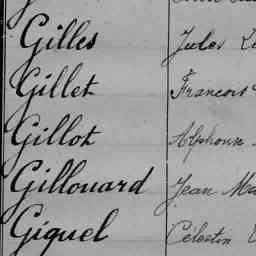 Gilles Jules
Gillet Francois
Gillot Alphonse
Gillouard Jean
Giquel Célestin